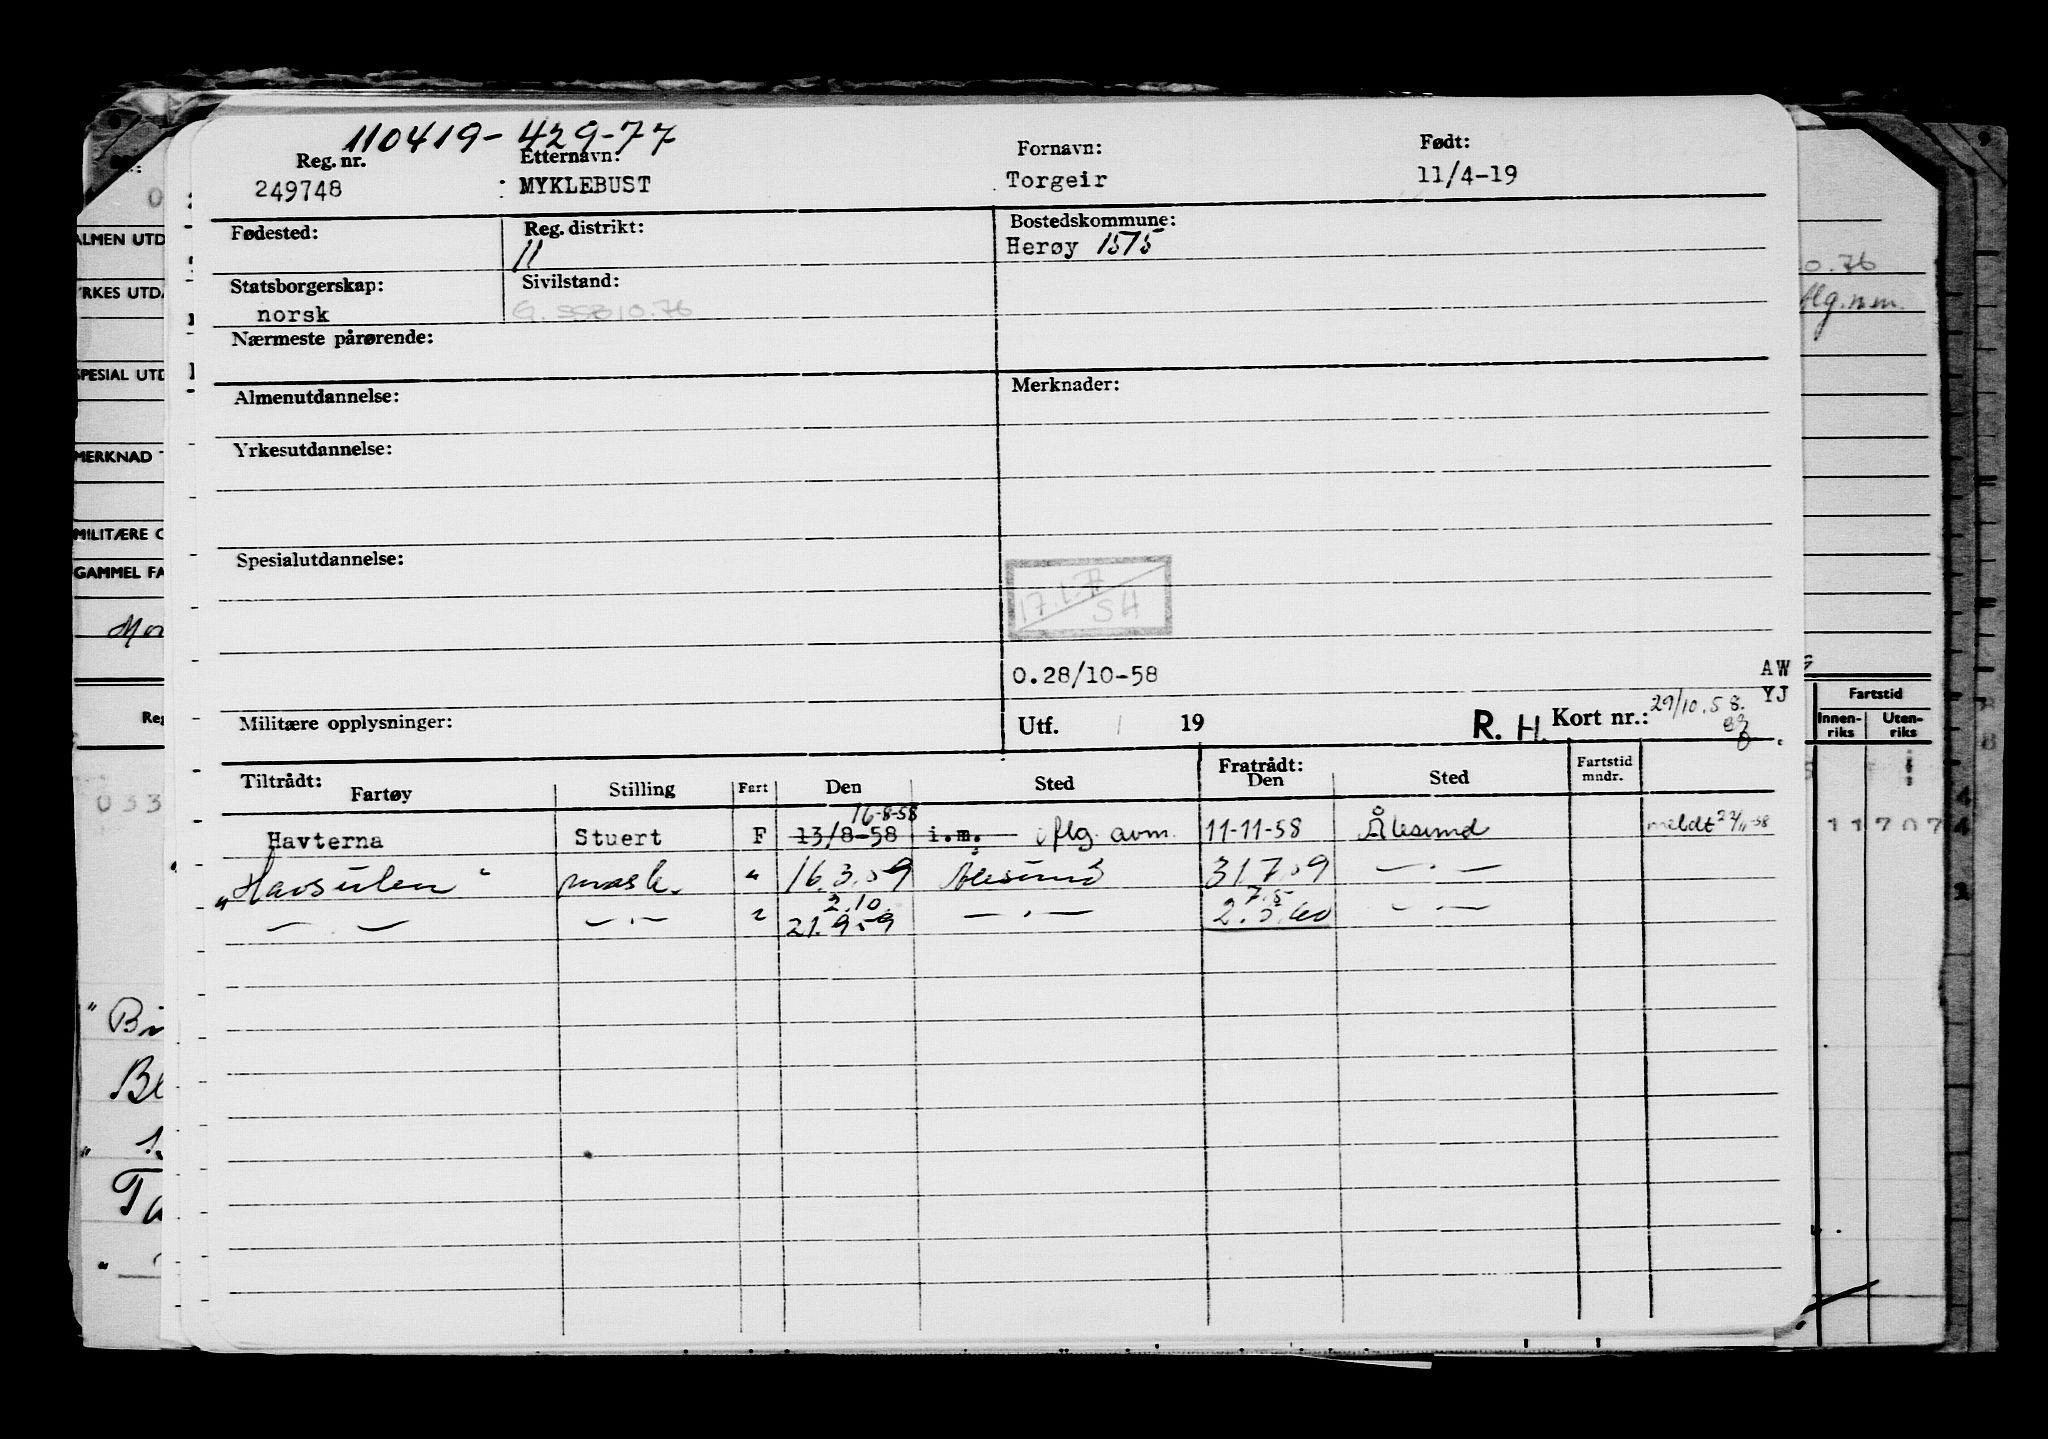 110419-429-77
Reg. nr. Etternavn: Fornavn: Født:
249748 : MYKLEBUST Torgeir 11/4-19
Fødested: Reg. distrikt: Bostedskommune:
11 Herøy 1575
Statsborgerskap: Sivilstand:
norsk
Nærmeste pårørende:
Almenutdannelse: Merknader:
Yrkesutdannelse:
Spesialutdannelse:
SH
0.28/10-58 AW
YJ
Militære opplysninger: Utf. 19 R. H. Kort nr.: 29/10.58.
Tiltrådt: Fratrådt: Fartstid
Fartøy Stilling Fart Den Sted Den Sted mndr.
16-8-58
Havterna Stuert F 13/8-58 i.m. iflg. avm. 11-11-58 Ålesund meldt 22/11-58
"Havsulen" mask. " 16.3.59 Ålesund 31.7.59 — . —
2.10. 7.5
— . — — . — " 21.9.59 — . — 2.5.60 — . —
ALMEN UTD
YRKES UTDA
SPESIAL UTD
MERKNAD
MILITÆRE O
GAMMEL FA
Mor
Reg
033
"Bi
Be
Ta
0.76
iflg. n.m.
Fartstid
Innen-riks Uten-riks
11707